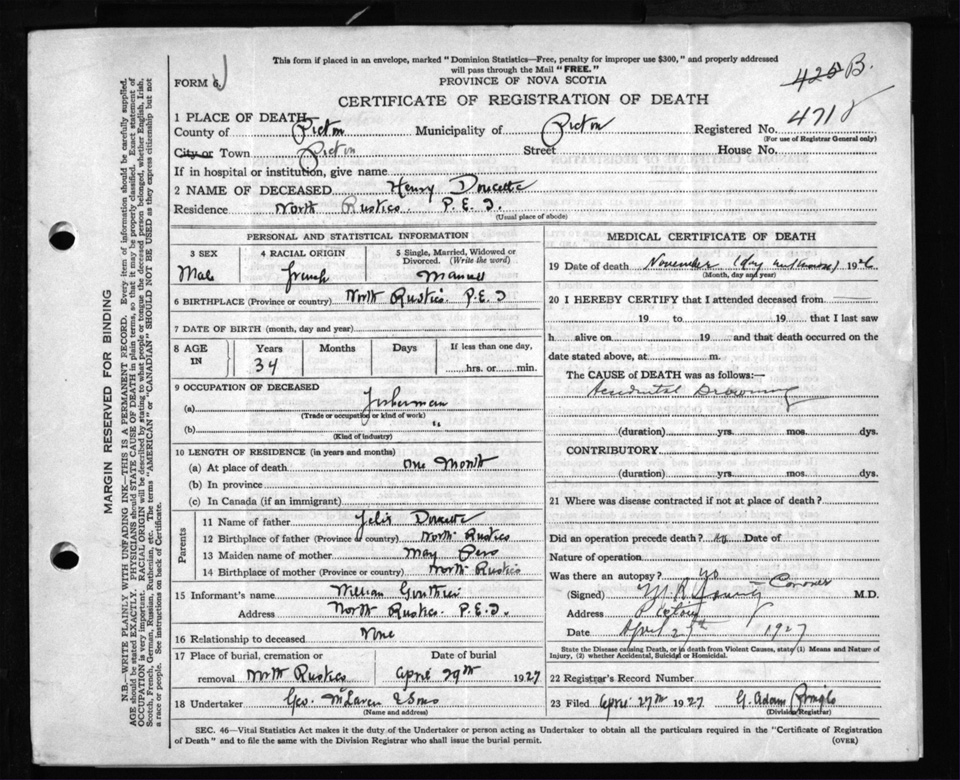 This form if placed in an envelope, marked "Dominion Statistics—Free, penalty for improper use $300," and properly addressed
will pass through the Mail "FREE."
FORM 6.
PROVINCE OF NOVA SCOTIA
425 B.
CERTIFICATE OF REGISTRATION OF DEATH
4718
1 PLACE OF DEATH
County of Pictou Municipality of Pictou Registered No.
(For use of Registrar General only)
City or Town Pictou Street House No.
If in hospital or institution, give name
2 NAME OF DECEASED Henry Doucette
Residence North Rustico. P.E.I.
(Usual place of abode)
PERSONAL AND STATISTICAL INFORMATION
3 SEX 4 RACIAL ORIGIN 5 Single, Married, Widowed or Divorced. (Write the word)
Male French Married
6 BIRTHPLACE (Province or country) North Rustico. P.E.I
7 DATE OF BIRTH (month, day and year)
8 AGE IN Years Months Days If less than one day,
34 hrs. or min.
9 OCCUPATION OF DECEASED
(a) Fisherman
(Trade or occupation or kind of work)
(b) "
(Kind of industry)
10 LENGTH OF RESIDENCE (in years and months)
(a) At place of death One Month
(b) In province
(c) In Canada (if an immigrant)
Parents
11 Name of father Felix Doucette
12 Birthplace of father (Province or country) North Rustico
13 Maiden name of mother May
14 Birthplace of mother (Province or country) North Rustico
15 Informant's name
Address North Rustico. P.E.I.
16 Relationship to deceased None
17 Place of burial, cremation or removal North Rustico
Date of burial April 29th 1927
18 Undertaker Geo. McLaren & Sons
(Name and address)
MEDICAL CERTIFICATE OF DEATH
19 Date of death November (day unknown) 1926
(Month, day and year)
20 I HEREBY CERTIFY that I attended deceased from
19 to 19 that I last saw
h alive on 19 and that death occurred on the
date stated above, at m.
The CAUSE of DEATH was as follows:—
Accidental Drowning
(duration) yrs. mos. dys.
CONTRIBUTORY
(duration) yrs. mos. dys.
21 Where was disease contracted if not at place of death?
Did an operation precede death? no Date of
Nature of operation
Was there an autopsy? no
(Signed) Young Coroner M.D.
Address Pictou
Date April 27th 1927
State the Disease causing Death, or in death from Violent Causes, state (1) Means and Nature of
Injury, (2) whether Accidental, Suicidal or Homicidal.
22 Registrar's Record Number
23 Filed April 27th 1927 G. Adam Pringle
(Division Registrar)
SEC. 46—Vital Statistics Act makes it the duty of the Undertaker or person acting as Undertaker to obtain all the particulars required in the "Certificate of Registration
of Death" and to file the same with the Division Registrar who shall issue the burial permit.
(OVER)
MARGIN RESERVED FOR BINDING
N.B.—WRITE PLAINLY WITH UNFADING INK—THIS IS A PERMANENT RECORD. Every item of information should be carefully supplied.
AGE should be stated EXACTLY. PHYSICIANS should STATE CAUSE OF DEATH in plain terms, so that it may be properly classified. Exact statement of
OCCUPATION is very important. RACIAL ORIGIN will be described by stating to what people or tongue the deceased person belonged, whether English, Irish,
Scotch, French, German, Russian, Ruthenian, etc. The terms "AMERICAN" or "CANADIAN" SHOULD NOT BE USED as they express citizenship but not
a race or people. See instructions on back of Certificate.